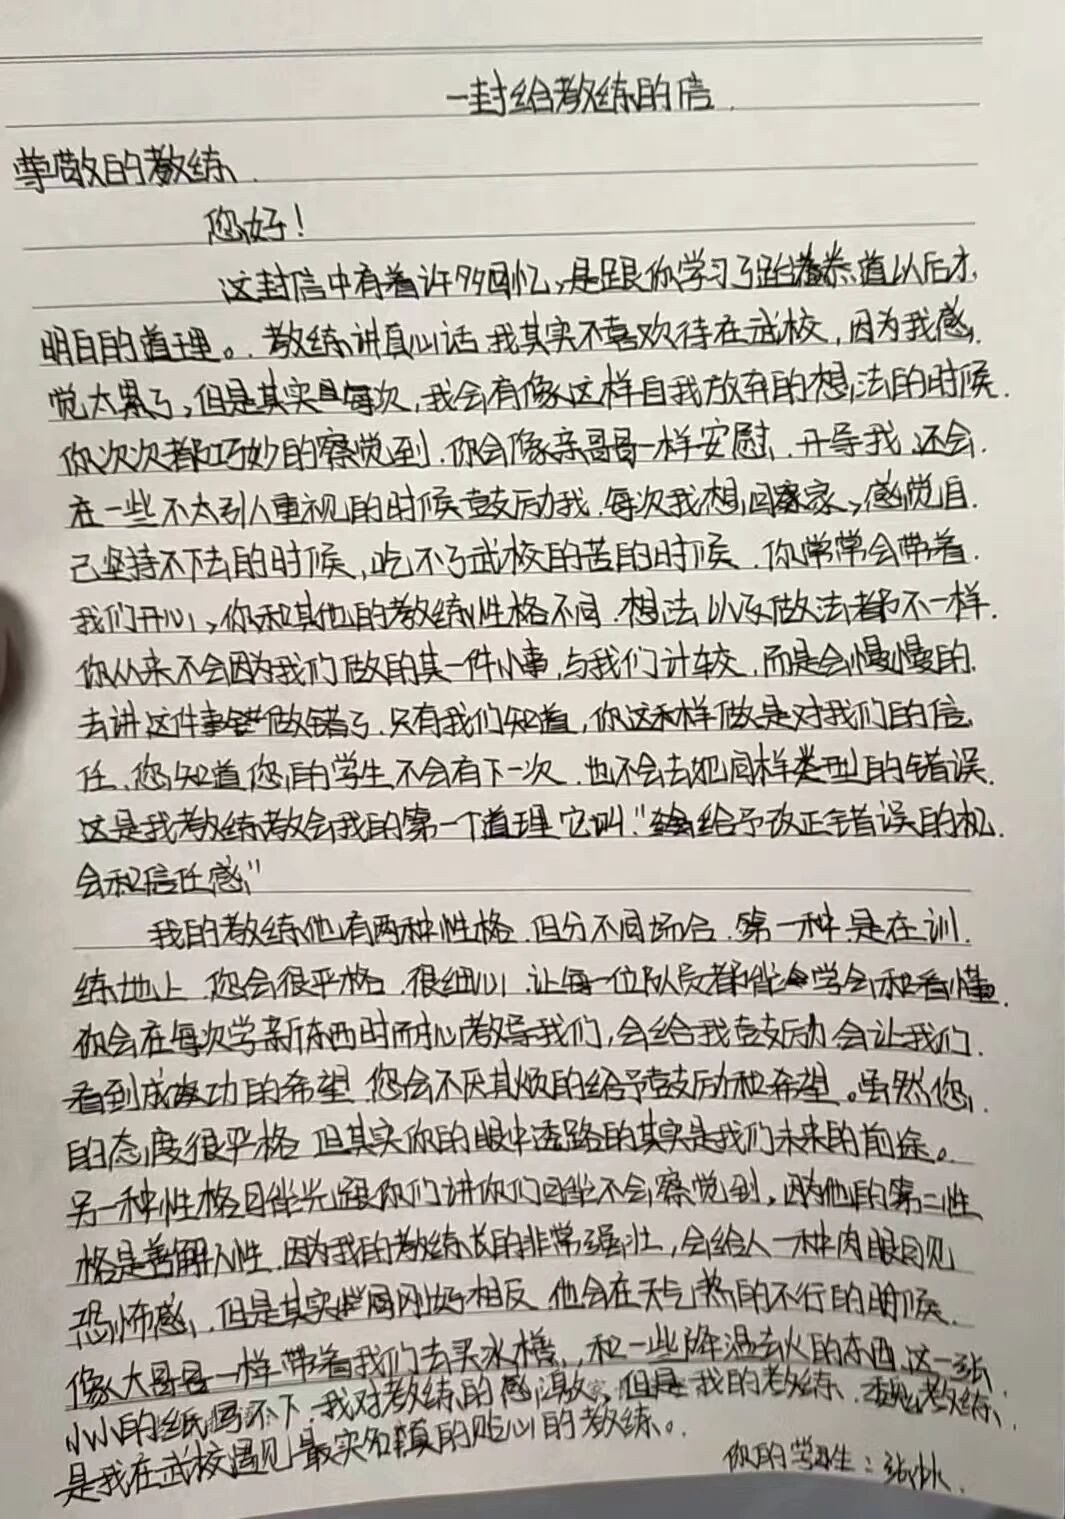 一封给教练的信
尊敬的教练
您好！
这封信中有着许多回忆，是跟你学习了跆拳道以后才
明白的道理。教练讲真心话我其实不喜欢待在武校，因为我感
觉太累了，但是其实每次，我会有像这样自我放弃的想法的时候
你次次都巧妙的察觉到你会像亲哥哥一样安慰开导我还会
在一些不太引人重视的时候鼓励我每次我想回家，感觉自
己坚持不下去的时候，吃不了武校的苦的时候你常常会带着
我们开心，你和其他的教练性格不同想法以及做法都不一样
你从来不会因为我们做的某一件小事与我们计较而是会慢慢的
去讲这件事做错了只有我们知道，你这样做是对我们的信
任您知道您的学生不会有下一次也不会去犯同样类型的错误
这是我教练教会我的第一个道理它叫"给予改正错误的机
会和信任感"
我的教练他有两种性格但分不同场合第一种是在训
练地上您会很严格很细心让每一位队员都能学会和看懂
你会在每次学新东西时耐心教导我们，会给我鼓励会让我们
看到成功的希望您会不厌其烦的给予鼓励和希望。虽然您
的态度很严格但其实你的眼中透路的其实是我们未来的前途。
另一种性格只能光跟你们讲你们可能不会察觉到，因为他的第二性
格是善解人性因为我的教练长的非常强壮，会给人一种肉眼可见
恐怖感，但是其实刚好相反他会在天气热的不行的时候
像大哥哥一样带着我们去买水和一些降温去火的东西这一张
小小的纸写不下我对教练的感激，但是我的教练教练
是我在武校遇见最实知的贴心的教练。
你的学生：张